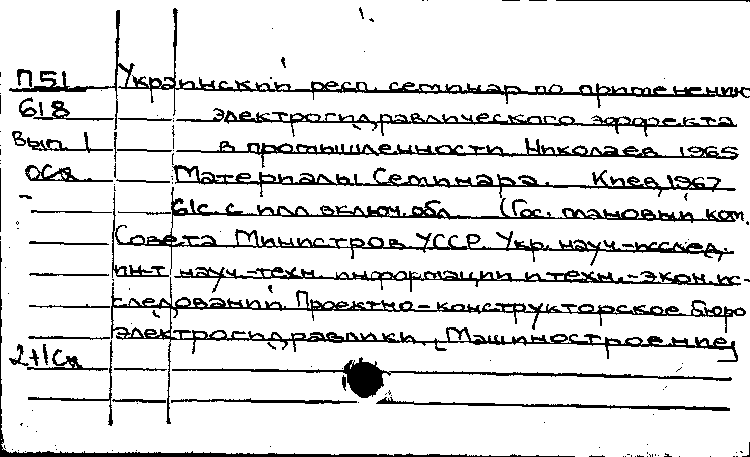 1.
П51 Украинский респ. семинар по применению
618 электрогидравлического эффекта
Вып. 1 в промышленности Николаев 1965
Материалы Семинара. Киев, 1967
61с. с илл включ. обл (Гос. плановый ком.
Совета Министров УССР. Укр. науч-исслед.
ин-т науч.-техн. информации и техн.-экон. ис-
следований Проектно-конструкторское бюро
электрогидравлики. [Машиностроение]